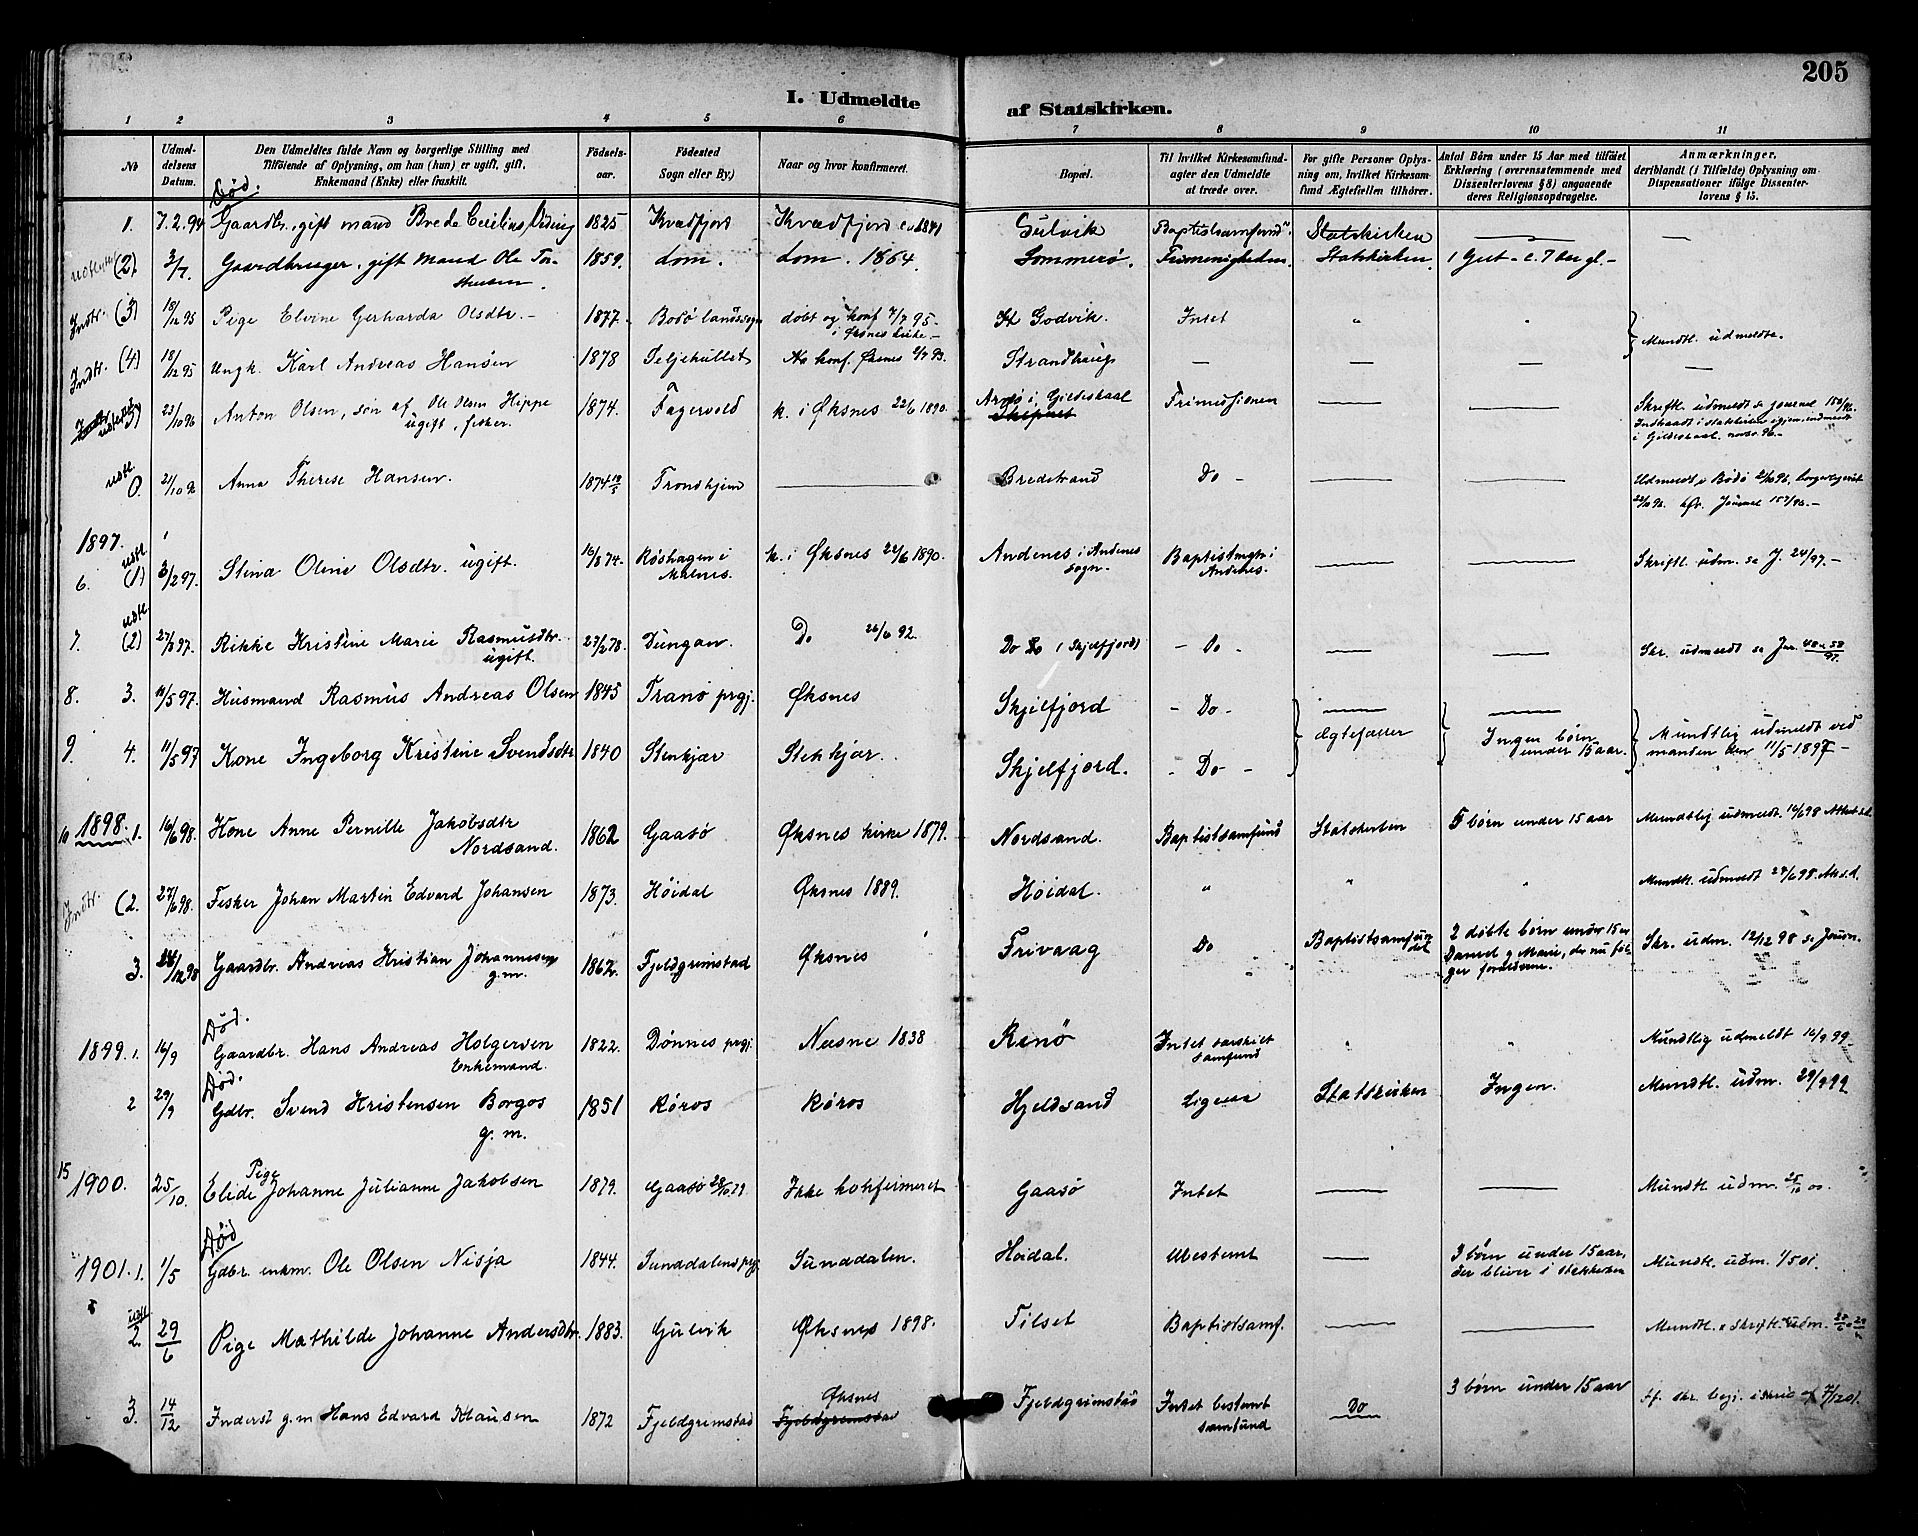 205
I. Udmeldte af Statskirken.
1 2 3 4 5 6 7 8 9 10 11
No
Udmeldelsens Datum.
Den Udmeldtes fulde Navn og borgerlige Stilling med
Tilføiende af Oplysning, om han (hun) er ugift, gift,
Enkemand (Enke) eller fraskilt.
Fødselsaar.
Fødested
Sogn eller By.)
Naar og hvor konfirmeret.
Bopæl.
Til hvilket Kirkesamfund-
agter den Udmeldte
at træde over.
For gifte Personer Oplys-
ning om, hvilket Kirkesam-
fund Ægtefællen tilhører.
Antal Børn under 15 Aar med tilføiet
Erklæring (overensstemmende med
Dissenterlovens § 8) angaaende
deres Religionsopdragelse.
Anmærkninger,
deriblandt (i Tilfælde) Oplysning om
Dispensationer ifølge Dissenter-
lovens § 15.
Død.
1. 7.2.94 Gaardbr., gift mand Brede Cecilius 1825 Kvædfjord Kvædfjord 1841 Gulvik Baptistsamfund Statskirken —
(2) 3/7. Gaardbruger, gift mand Ole Tor- 1859. Lom. Lom. 1864. Sommerø. Frimenigheden. Statskirken. 1 Gut —
Indtr. (3) 18/12 95 Pige Elvine Gerharda Olsdtr. — 1877. Bodø landsogn døbt og konf 7/7 95 — Godvik. Intet " "
i Øksnes kirke —
Mundtl. udmeldte.
Indtr. (4) 18/12 95 Ungk. Karl Andreas Hansen 1878 konf. Øksnes Strandhaug — — — —
23/10 96 Anton Olsen, søn af Ole Olsen Hippe 1874. Fagervold k. i Øksnes 22/6 1890. i Gildeskaal Frimissionen — — Skriftl. udmeldt se journal 152/96.
ugift, fisker.
i Gildeskaal novbr. 96 —
udtl. 21/10 96 Anna Therese Hansen. 1874 Trondhjem — Bredstrand Do — — — Udmeldt i Bodø
22/10 96. Journal 152/96. —
1897.
6. udtl. (1) 3/2 97. Stina Oline Olsdtr. ugift. 16/8 74. Røshagen i k. i Øksnes 22/6 1890. Andenes i Andenes Baptistmgh. i — — Skriftl. udm. se J. 24/97. —
Malnes. sogn. Andenes.
udtl.
7. (2) 27/ 97. Rikke Kristine Marie Rasmusdtr. 27/2 78. Dungan. Do 26/6 92. Do ( Skjelfjord) — Do — — — Skr. udmeldt se Jnr.
ugift.
8. 3. 11/5 97. Husmand Rasmus Andreas Olsen 1845 Tranø prgj. Øksnes Skjelfjord — Do — — —
Ægtefæller Ingen børn Mundtlig udmeldt ved
under 15 aar. manden den 11/5 1897 —
9. 4. 11/5 97 Kone Ingeborg Kristine Svendsdtr 1840 Stenkjær Stenkjær. Skjelfjord. — Do —
10 1898. 1. 16/6 98. Kone Anne Pernille Jakobsdtr 1862 Gaasø Øksnes kirke 1879. Nordsand. Baptistsamfund Statskirken 5 børn under 15 aar Mundtlig udmeldt. 16/6 98
Nordsand.
Indtr. (2. 27/6 98. Fisker Johan Martin Edvard Johansen 1873. Høidal Øksnes 1889. Høidal " " " Mundtl. udmeldt 27/6 98
3. 12 98 Gaardbr. Andreas Kristian Johannesen 1862. Fjeldgrimstad Øksnes Frivaag Do Baptistsamfun- 2 døbte børn under 15 aar Skr. udm. 12/12 98 se Journ.
g.m. det Daniel og Marie, der nu føl-
ger forældrene.
Død.
1899. 1. 16/9 Gaardbr. Hans Andreas Holgersen 1822. Dønnes prgj. Nesne 1838 Renø Intet særskilt " " Mundtlig udmeldt 16/9 99.
Enkemand. samfund
Død.
2 29/9 Gdbr. Svend Kristensen Borgos 1851 Røros Røros Hjeldsand Ligesaa Statskirken Ingen. Mundtl. udm. 29/9 99
g.m.
15 1900. 25/10. Pige
Elide Johanne Julianne Jakobsen 1879. Gaasø 28/10 79 Ikke konfirmeret Gaasø Intet — — Mundtl. udm. 25/10 00.
Død
1901. 1. 1/5 Gdbr. enkm. Ole Olsen Nisja 1844. Sunddalens prgj. Sunddalen. Høidal. Ubestemt — 3 børn under 15 aar, Mundtl. udm. 1/5 01.
der bliver i statskirken
udtl
2. 29/6 Pige Mathilde Johanne Andersdtr. 1883. Gulvik Øksnes 1898. Tilset Baptistsamf. — — Mundtl. & skriftl. udm.
3. 14/12 Inderst g.m Hans Edvard Klausen 1872 Fjeldgrimstad Øksnes Fjeldgrimstad Intet bestemt Do 3 børn under 15 aar
Fjeldgrimstad samfund